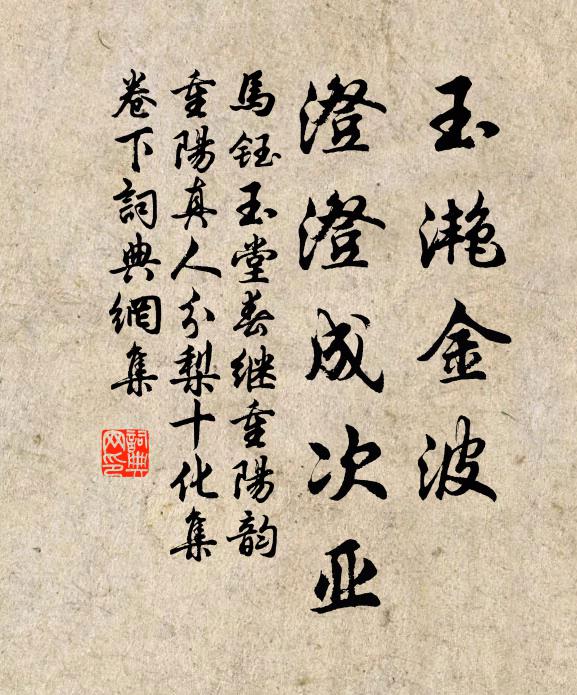 玉滟金波
澄澄成次亚
馬鈺玉堂春继重陽韵
重陽真人分梨十化集
卷下詞典網集
詞典網印